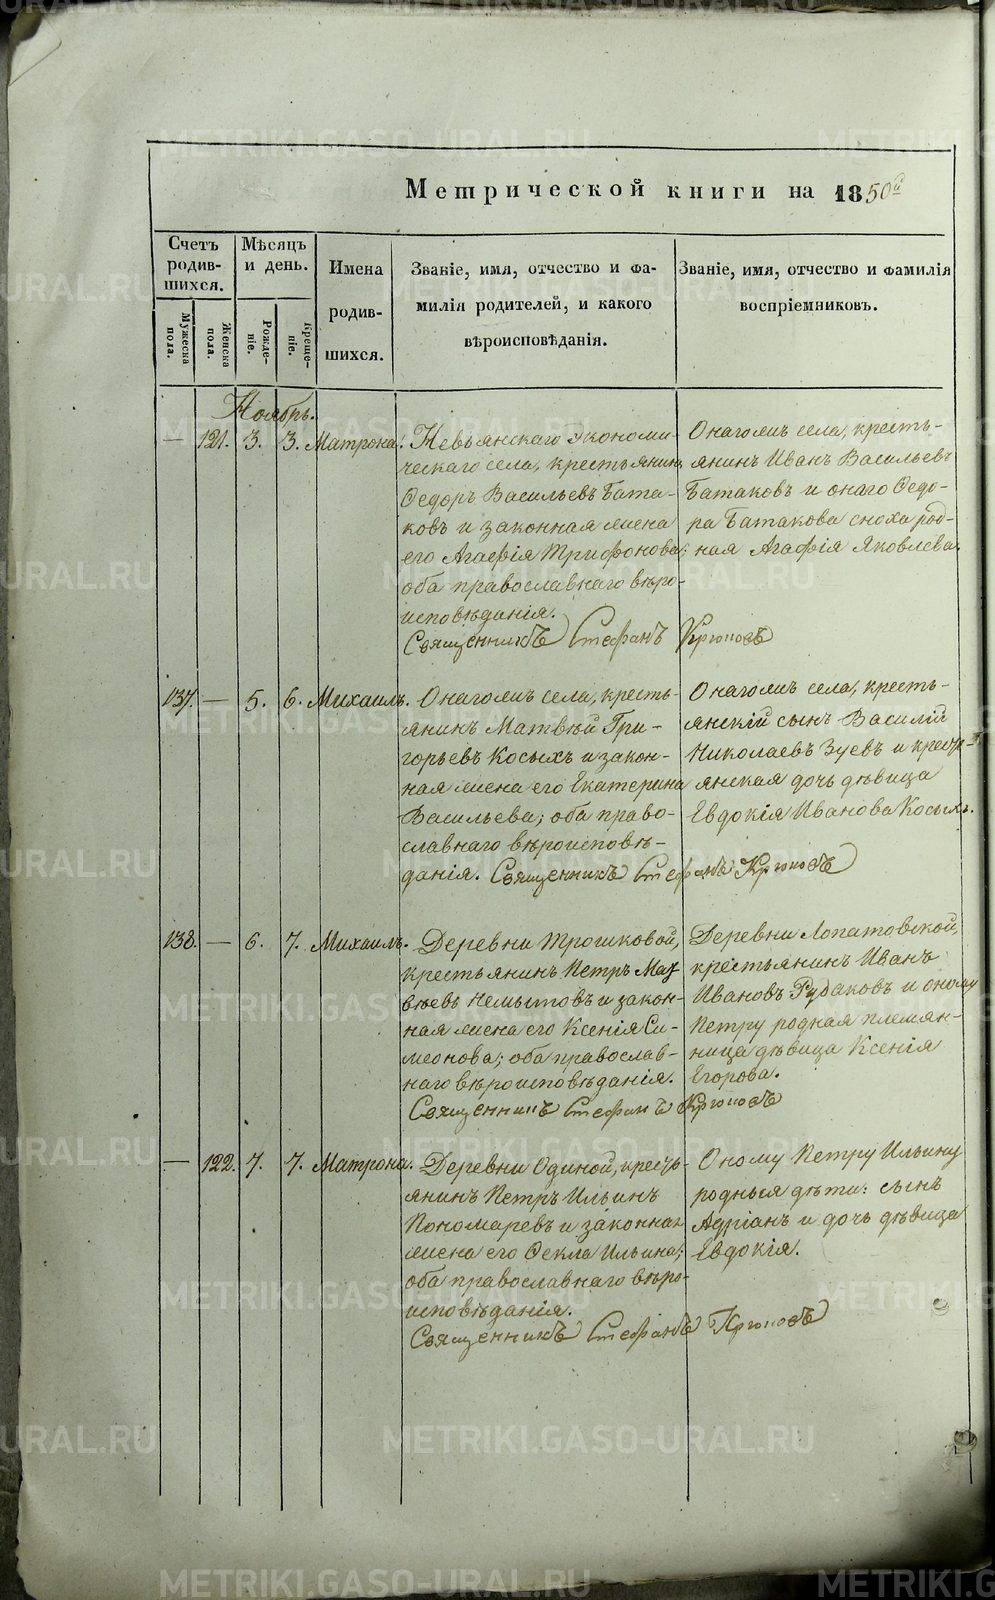 Метрической книги на 1850й
Счетъ родившихся.
Мѣсяцъ и день.
Имена родившихся.
Званіе, имя, отчество и фамилія родителей, и какого вѣроисповѣданія.
Званіе, имя, отчество и фамилія воспріемниковъ.
Мужеска пола.
Женска пола.
Рожденіе.
Крещеніе.
Ноябрь.
— 121. 3. 3. Матрона.
Невьянскаго экономи-
ческаго села, крестьянинъ
Ѳедоръ Васильевъ Бата-
ковъ и законная жена
его Агафія Трифонова;
оба православнаго вѣро-
исповѣданія.
Онагожъ села, кресть-
янинъ Иванъ Васильевъ
Батаковъ и онаго Ѳедо-
ра Батакова сноха род-
ная Агафія Яковлева.
Священникъ Стефанъ Крюковъ
137. — 5. 6. Михаилъ.
Онагожъ села, кресть-
янинъ Матвѣй Гри-
горьевъ Косыхъ и закон-
ная жена его Екатерина
Васильева; оба право-
славнаго вѣроисповѣ-
данія. Священникъ Стефанъ Крюковъ
Онагожъ села, кресть-
янскій сынъ Василій
Николаевъ Зуевъ и крестьянская дочь дѣвица
Евдокія Иванова Косыхъ.
138. — 6. 7. Михаилъ.
Деревни Трошковой,
крестьянинъ Петръ Мат-
вѣевъ Немытовъ и закон-
ная жена его Ксенія Си-
меонова; оба православ-
наго вѣроисповѣданія.
Деревни Лопатовской,
крестьянинъ Иванъ
Ивановъ Рудаковъ и оному
Петру родная племян-
ница дѣвица Ксенія
Егорова.
Священникъ Стефанъ Крюковъ
— 122. 7. 7. Матрона.
Деревни Одиной, кресть-
янинъ Петръ Ильинъ
Пономаревъ и законная
жена его Ѳекла Ильина;
оба православнаго вѣро-
исповѣданія.
Оному Петру Ильину
родныя дѣти: сынъ
Адріанъ и дочь дѣвица
Евдокія.
Священникъ Стефанъ Крюковъ
METRIKI.GASO-URAL.RU